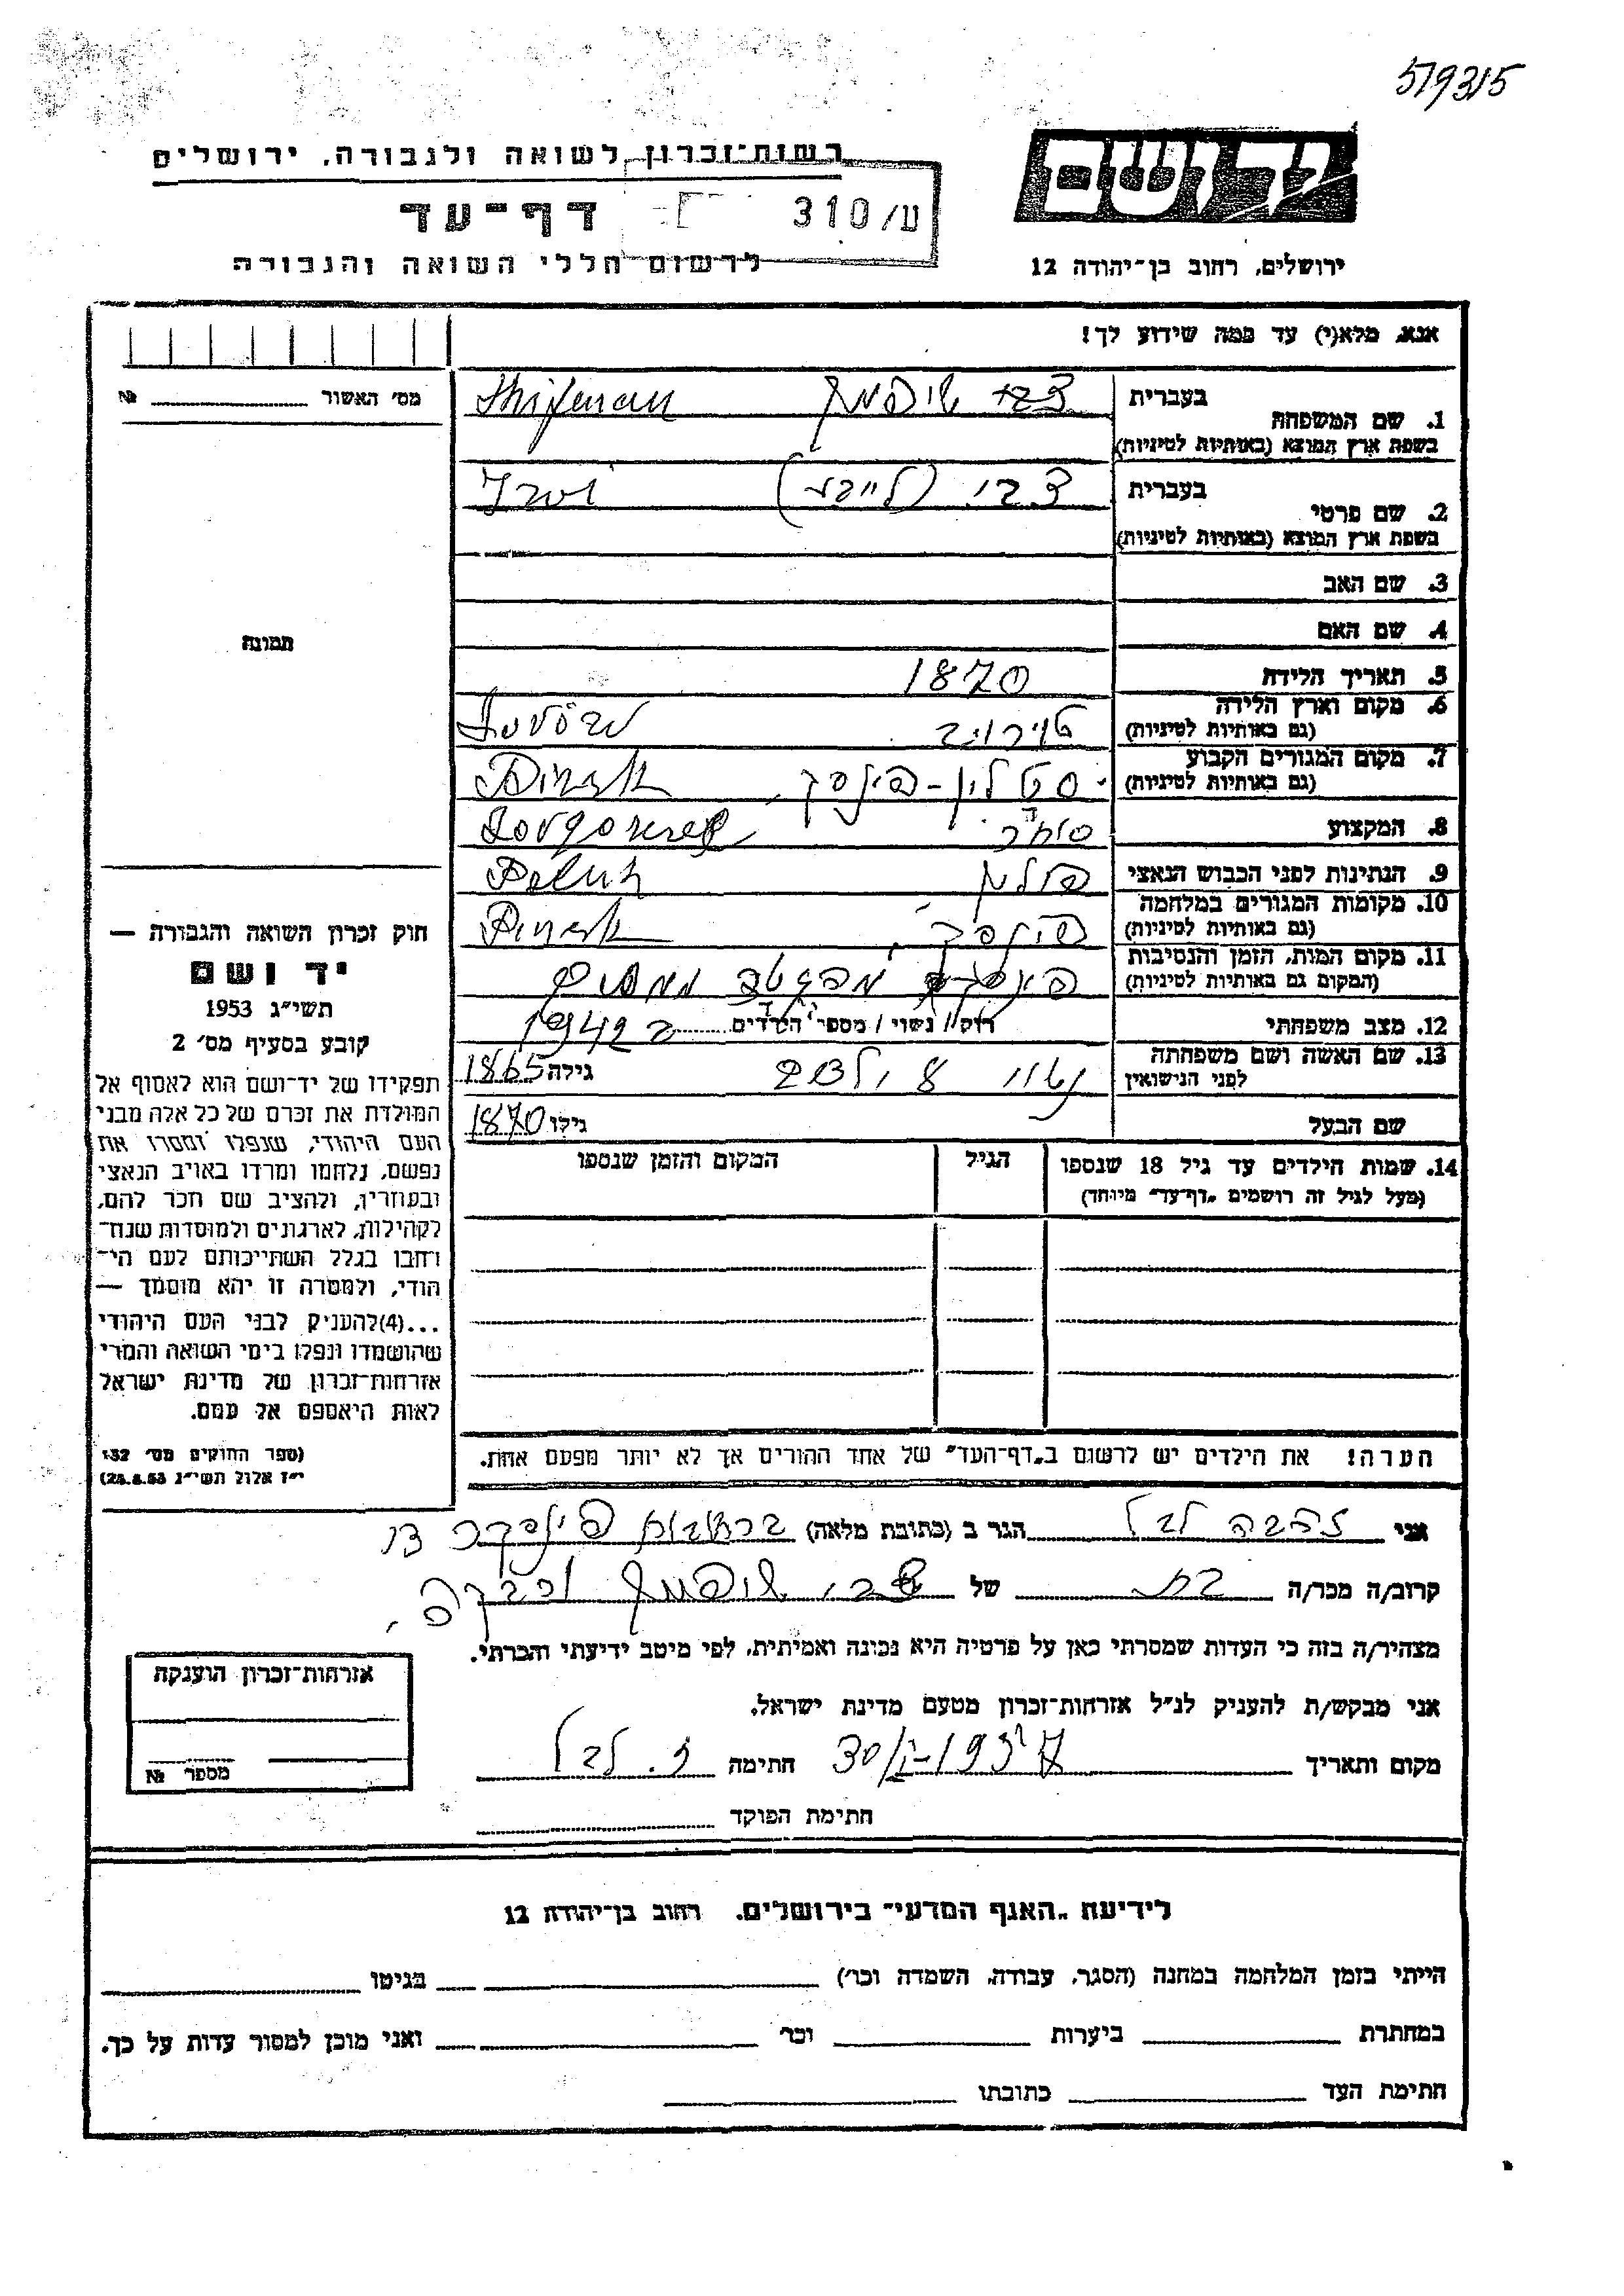 5/9315
יד ושם
רשות־זכרון לשואה ולגבורה, ירושלים
ע/310
דף־עד
ירושלים, רחוב בן־יהודה 12
לרשום חללי השואה והגבורה
אנא, מלא(י) עד כמה שידוע לך!
מס׳ האשור №
1. שם המשפחה
בעברית שיפמן
בשפת ארץ המוצא (באותיות לטיניות) Shifman
2. שם פרטי
בעברית צבי
בשפת ארץ המוצא (באותיות לטיניות)
3. שם האב
4. שם האם
תמונה
5. תאריך הלידה 1870
6. מקום וארץ הלידה
(גם באותיות לטיניות)
7. מקום המגורים הקבוע סטלין - פינסק Pinsk
(גם באותיות לטיניות)
8. המקצוע סוחר
9. הנתינות לפני הכבוש הנאצי פולין
10. מקומות המגורים במלחמה פינסק Pinsk
(גם באותיות לטיניות)
11. מקום המות, הזמן והנסיבות
(המקום גם באותיות לטיניות)
12. מצב משפחתי רוק/ נשוי / מספר הילדים 1942
13. שם האשה ושם משפחתה
לפני הנישואין גילה 1865
שם הבעל גילו 1870
14. שמות הילדים עד גיל 18 שנספו הגיל המקום והזמן שנספו
(מעל לגיל זה רושמים „דף־עד” מיוחד)
הערה! את הילדים יש לרשום ב„דף־העד” של אחד ההורים אך לא יותר מפעם אחת.
חוק זכרון השואה והגבורה —
יד ושם
תשי״ג 1953
קובע בסעיף מס׳ 2
תפקידו של יד־ושם הוא לאסוף אל
המולדת את זכרם של כל אלה מבני
העם היהודי, שנפלו ומסרו את
נפשם, נלחמו ומרדו באויב הנאצי
ובעוזריו, ולהציב שם וזכר להם,
לקהילות, לארגונים ולמוסדות שנח־
רחבו בגלל השתייכותם לעם הי־
הודי, ולמטרה זו יהא מוסמך —
...(4)להעניק לבני העם היהודי
שהושמדו ונפלו בימי השואה והמרי
אזרחות־זכרון של מדינת ישראל
לאות היאספם אל עמם.
(ספר החוקים מס׳ 132
י״ז אלול תשי״ג 28.8.53)
אני זהבה לבל הגר ב (כתובת מלאה) ברחובות פינסקר
קרוב/ה מכר/ה בת של צבי שיפמן
מצהיר/ה בזה כי העדות שמסרתי כאן על פרטיה היא נכונה ואמיתית, לפי מיטב ידיעתי והכרתי.
אני מבקש/ת להעניק לנ״ל אזרחות־זכרון מטעם מדינת ישראל.
מקום ותאריך חתימה ז. לבל
חתימת הפוקד
אזרחות־זכרון הוענקה
מספר №
לידיעת „האגף המדעי” בירושלים, רחוב בן־יהודה 12
הייתי בזמן המלחמה במחנה (הסגר, עבודה, השמדה וכו׳) בגיטו
במחתרת ביערות וכו׳ ואני מוכן למסור עדות על כך.
חתימת העד כתובתו